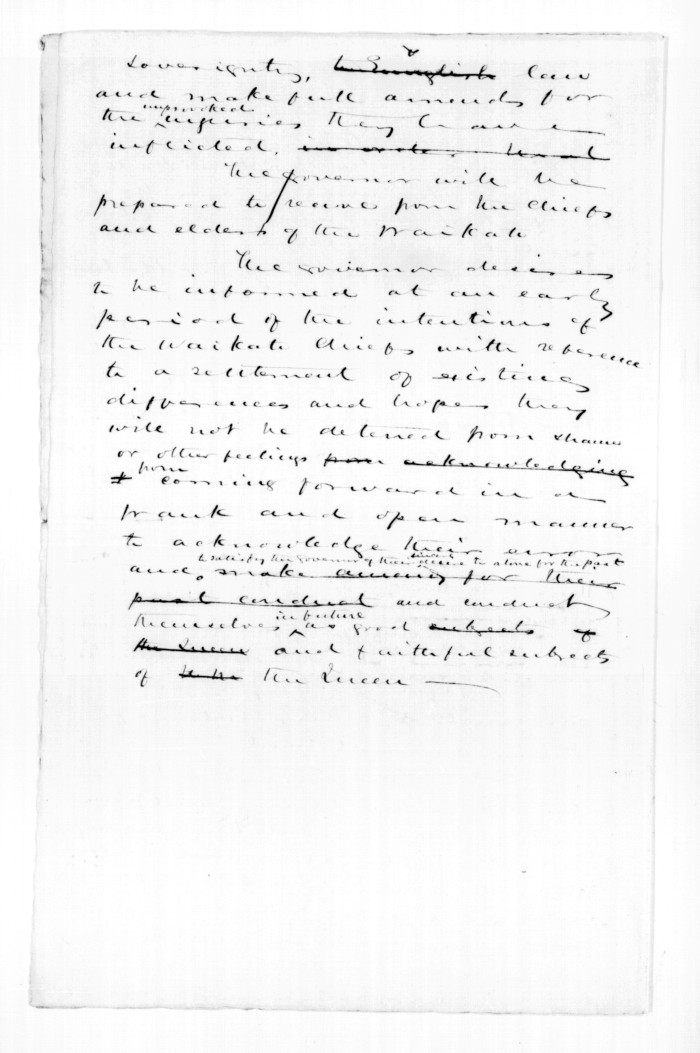 Sovereignty, & to English law
and make full amends for
the unprovoked injuries they have
inflicted,
The Governor will be
prepared to receive from the Chiefs
and elders of the Waikato
The Governor desires
to be informed at an early
period of the intentions of
the Waikato Chiefs with reference
to a settlement of existing
differences and hopes they
will not be deterred from shame
or other feelings from acknowledging
from
coming forward in a
frank and open manner
to acknowledge their errors
to satisfy the Governor of their desire to atone for the past
and make amends for their
past conduct and conduct
in future
themselves as good subjects of
the Queen and faithful subjects
of the Queen